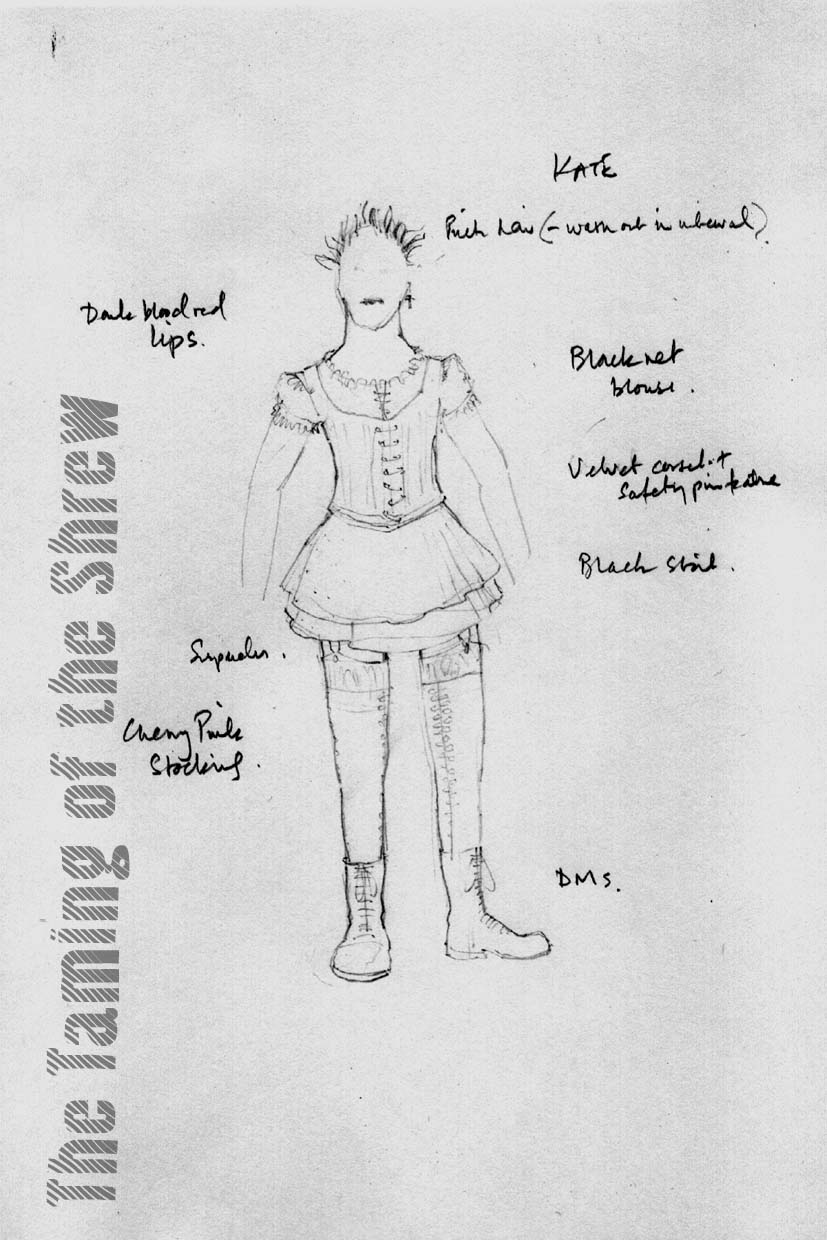 KATE
Pink hair (– wash out in interval)
Dark blood red
lips.
Black net
blouse.
Velvet corset +
safety pin
Black skirt.
Suspender.
Cherry Pink
Stocking.
DMs.
The Taming of the Shrew